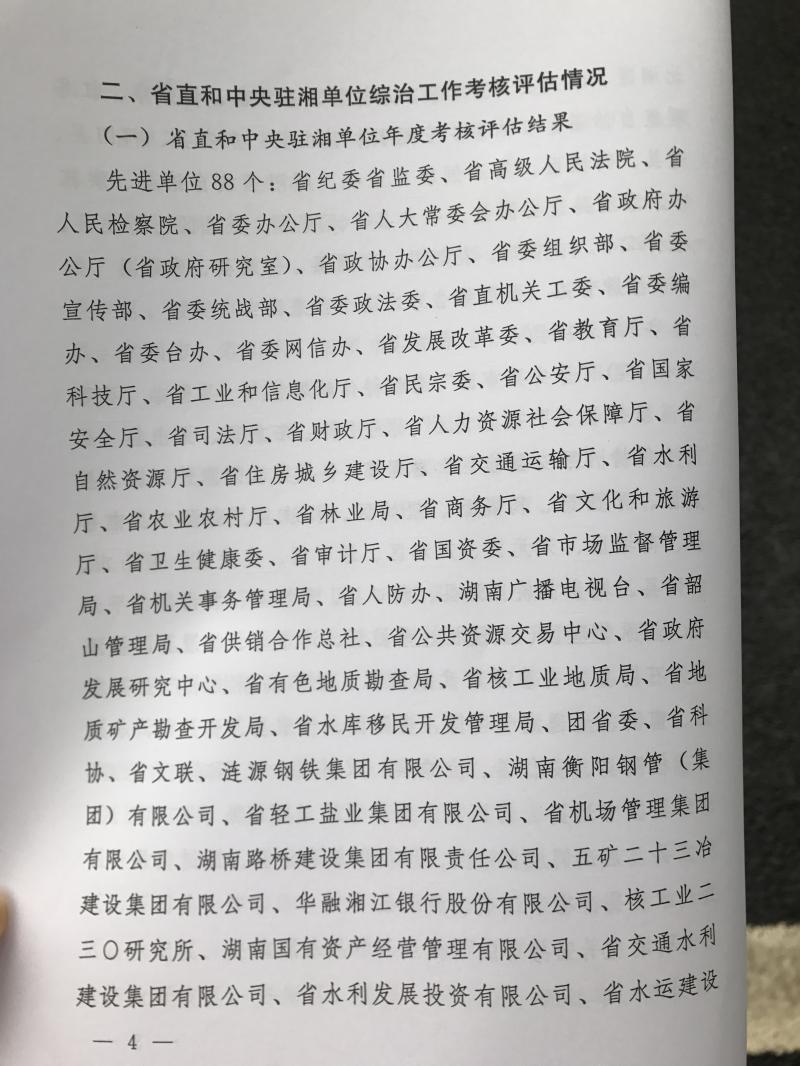 二、省直和中央驻湘单位综治工作考核评估情况
（一）省直和中央驻湘单位年度考核评估结果
先进单位88个：省纪委省监委、省高级人民法院、省
人民检察院、省委办公厅、省人大常委会办公厅、省政府办
公厅（省政府研究室）、省政协办公厅、省委组织部、省委
宣传部、省委统战部、省委政法委、省直机关工委、省委编
办、省委台办、省委网信办、省发展改革委、省教育厅、省
科技厅、省工业和信息化厅、省民宗委、省公安厅、省国家
安全厅、省司法厅、省财政厅、省人力资源社会保障厅、省
自然资源厅、省住房城乡建设厅、省交通运输厅、省水利
厅、省农业农村厅、省林业局、省商务厅、省文化和旅游
厅、省卫生健康委、省审计厅、省国资委、省市场监督管理
局、省机关事务管理局、省人防办、湖南广播电视台、省韶
山管理局、省供销合作总社、省公共资源交易中心、省政府
发展研究中心、省有色地质勘查局、省核工业地质局、省地
质矿产勘查开发局、省水库移民开发管理局、团省委、省科
协、省文联、涟源钢铁集团有限公司、湖南衡阳钢管（集
团）有限公司、省轻工盐业集团有限公司、省机场管理集团
有限公司、湖南路桥建设集团有限责任公司、五矿二十三冶
建设集团有限公司、华融湘江银行股份有限公司、核工业二
三〇研究所、湖南国有资产经营管理有限公司、省交通水利
建设集团有限公司、省水利发展投资有限公司、省水运建设
— 4 —